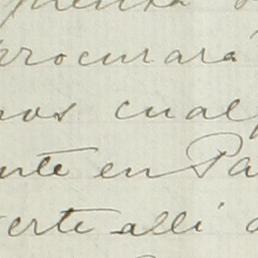 procurará
nos cual
nte en Pa
erte alli